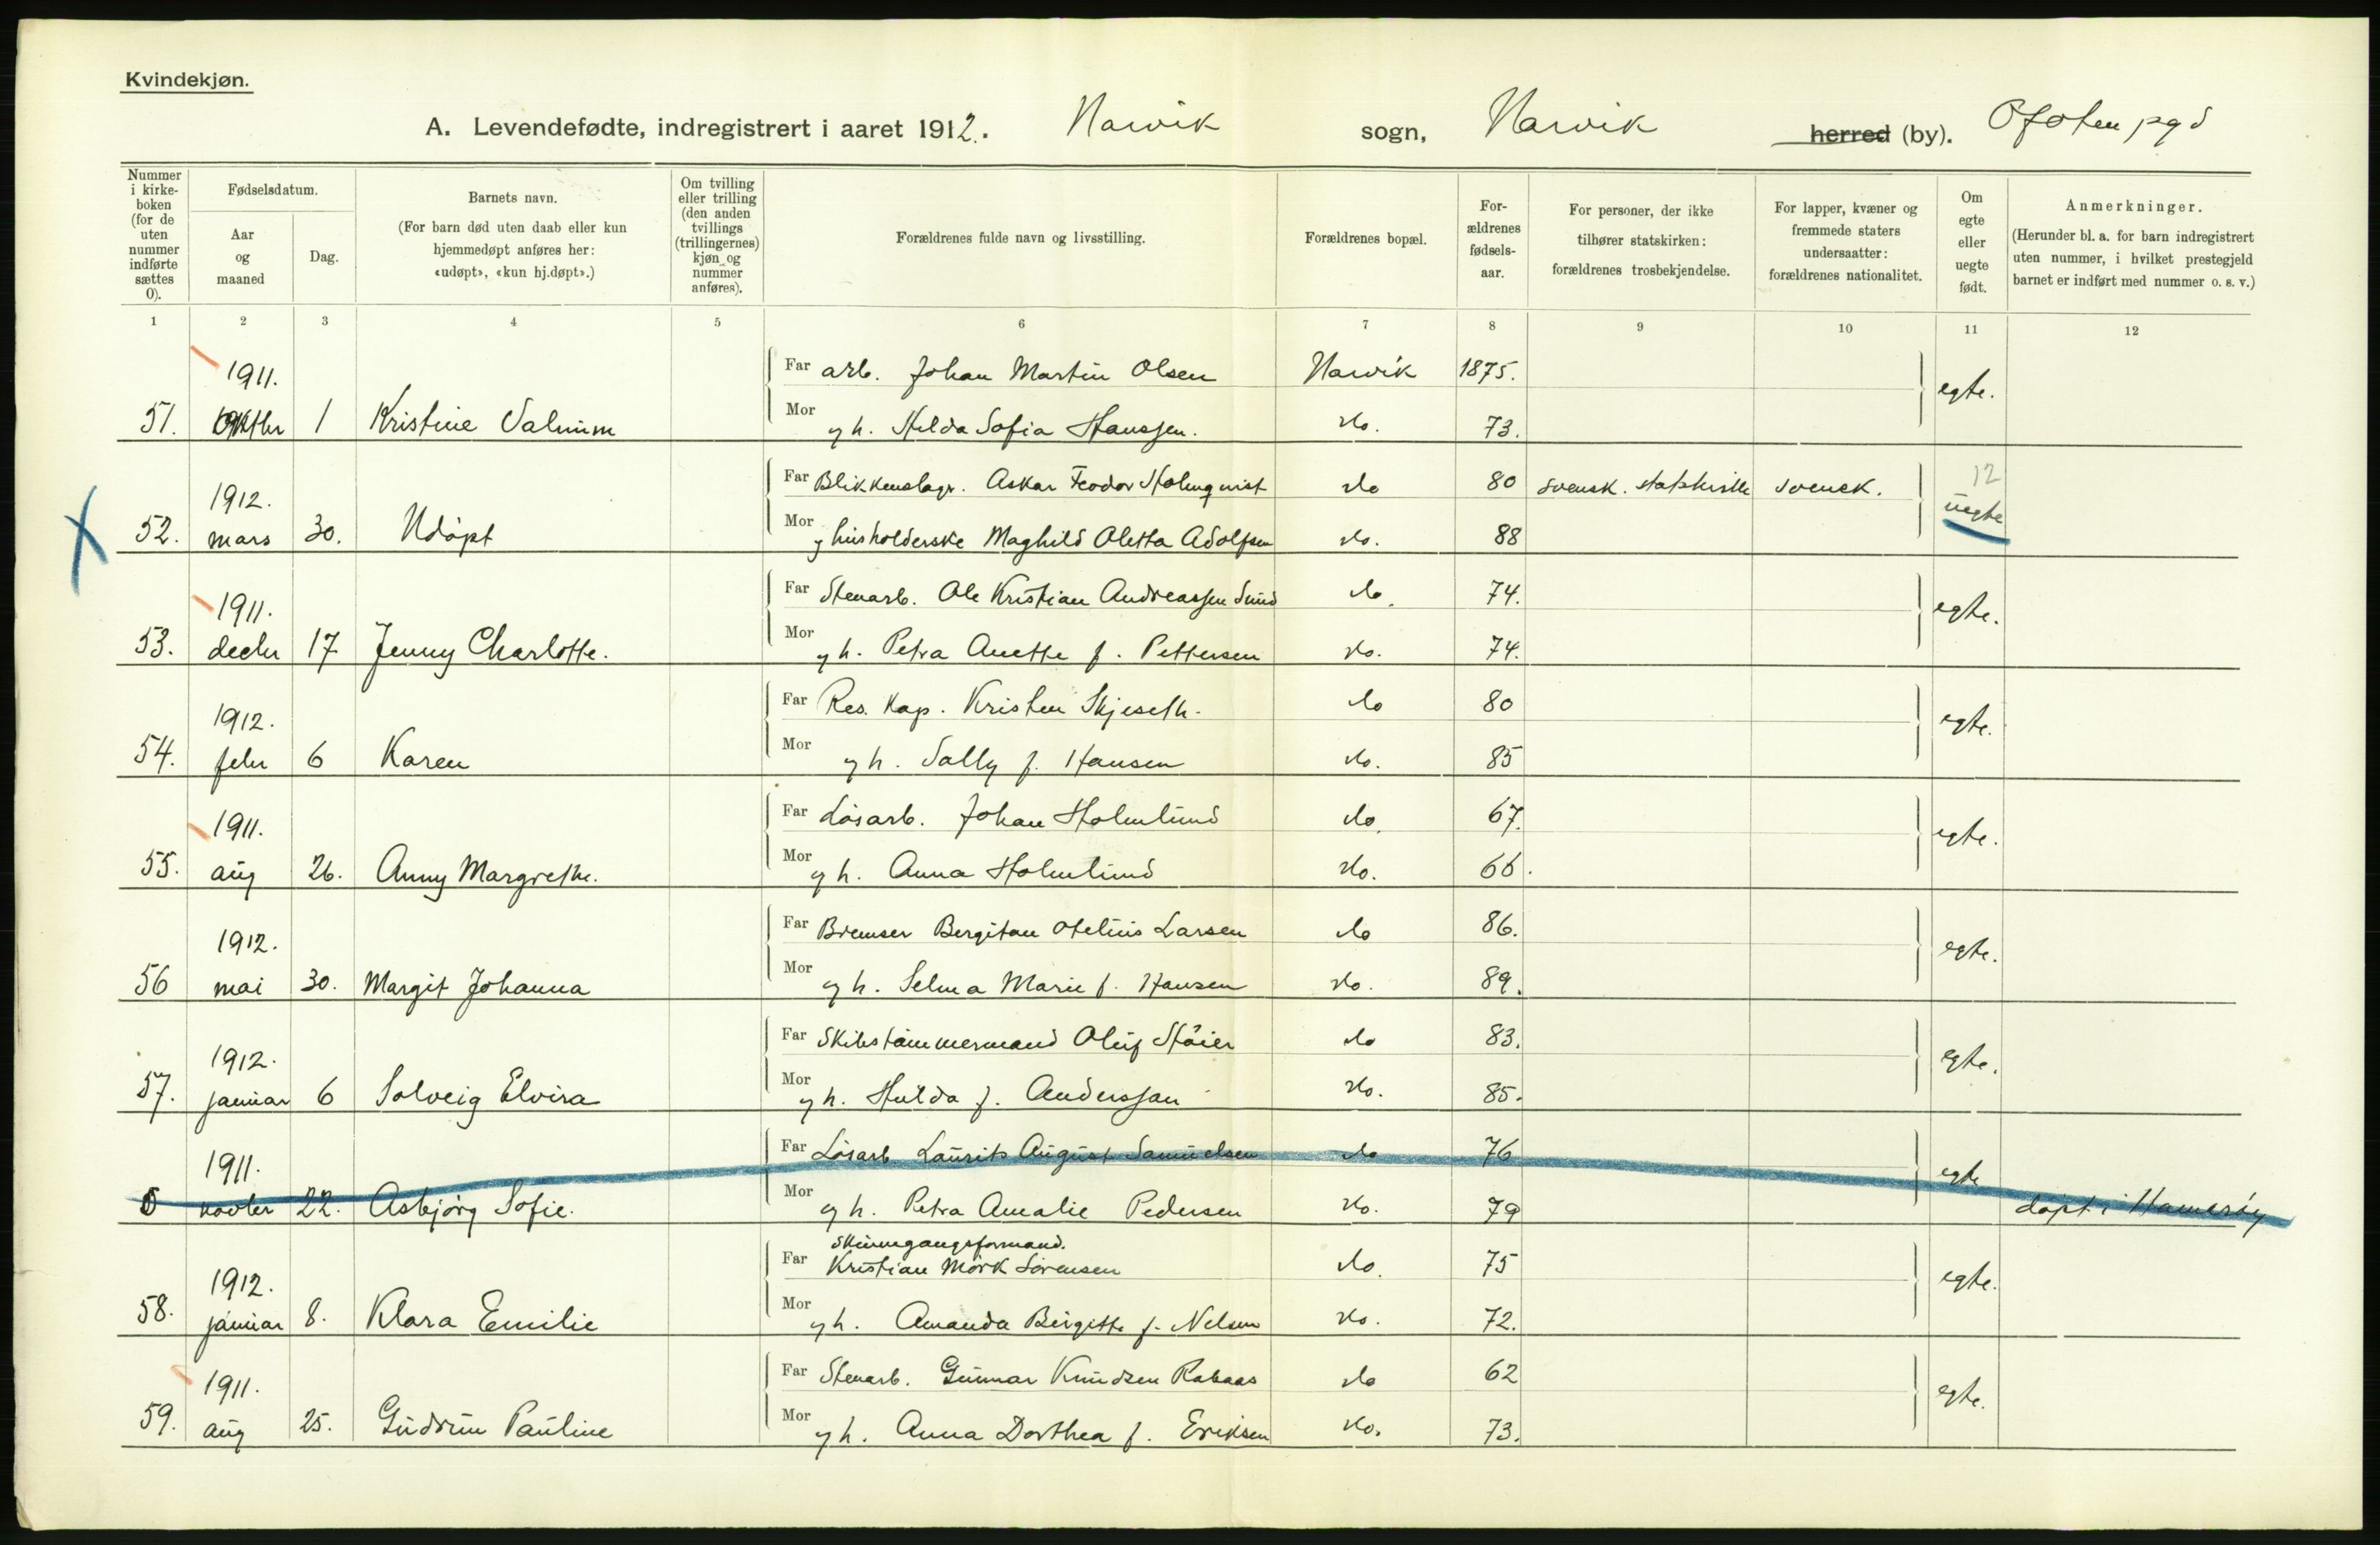 Kvindekjøn.
A. Levendefødte, indregistrert i aaret 1912. Narvik sogn, Narvik herred (by). Ofoten pgd
Nummer i kirkeboken (for de uten nummer indførte sættes 0).
Fødselsdatum.
Aar og maaned
Dag.
Barnets navn.
(For barn død uten daab eller kun hjemmedøpt anføres her: «udøpt», «kun hj.døpt».)
Om tvilling eller trilling (den anden tvillings (trillingernes) kjøn og nummer anføres).
Forældrenes fulde navn og livsstilling.
Forældrenes bopæl.
Forældrenes fødselsaar.
For personer, der ikke tilhører statskirken: forældrenes trosbekjendelse.
For lapper, kvæner og fremmede staters undersaatter: forældrenes nationalitet.
Om egte eller uegte født.
Anmerkninger.
(Herunder bl. a. for barn indregistrert uten nummer, i hvilket prestegjeld barnet er indført med nummer o. s. v.)
1 2 3 4 5 6 7 8 9 10 11 12
1911. Far arb. Johan Martin Olsen Narvik 1875. egte.
51. oktbr 1 Kristine Valmim Mor gh. Hilda Sofia Hanssen. do. 73.
1912. Far Blikkenslagr. Askar Feodor Holmqvist do 80 svensk. statskirke svensk. 12 uegte
52. mars 30. Udøpt Mor husholderske Maghild Oletta Adolfsen do. 88
1911. Far Stenarb. Ole Kristian Andreassen Sund do. 74. egte.
53. decbr 17 Jenny Charlotte. Mor gh. Petra Anette f. Pettersen do. 74.
1912. Far Res. Kap. Kristen Skjeseth. do 80 egte.
54. febr 6 Karen Mor gh. Sally f. Hansen do. 85
1911. Far Løsarb. Johan Holmlund do. 67. egte.
55. aug 26. Anny Margrethe. Mor gh. Anna Holmlund do. 66.
1912. Far Bremser Bergitan Otelius Larsen do 86. egte.
56 mai 30. Margit Johanna Mor gh. Selma Marie f. Hansen do. 89.
1912. Far Skibstømmermand Oluf Støier do 83. egte.
57. januar 6 Solveig Elvira Mor gh. Hulda f. Anderssan do. 85.
1911. Far Løsarb Laurits August Samuelsen do 76 egte
0 novbr 22. Asbjørg Sofie. Mor gh. Petra Amalie Pedersen do. 79 døpt i Hamerøy
Skinnegangsformand.
1912. Far Kristian Mørk Sørensen do. 75 egte.
58. januar 8. Klara Emilie Mor gh. Amanda Birgitte f. Nelsen do. 72.
1911. Far Stenarb. Gunnar Knudsen Rabaas do 62 egte.
59. aug 25. Gudrun Pauline Mor gh. Anna Dorthea f. Eriksen do. 73.